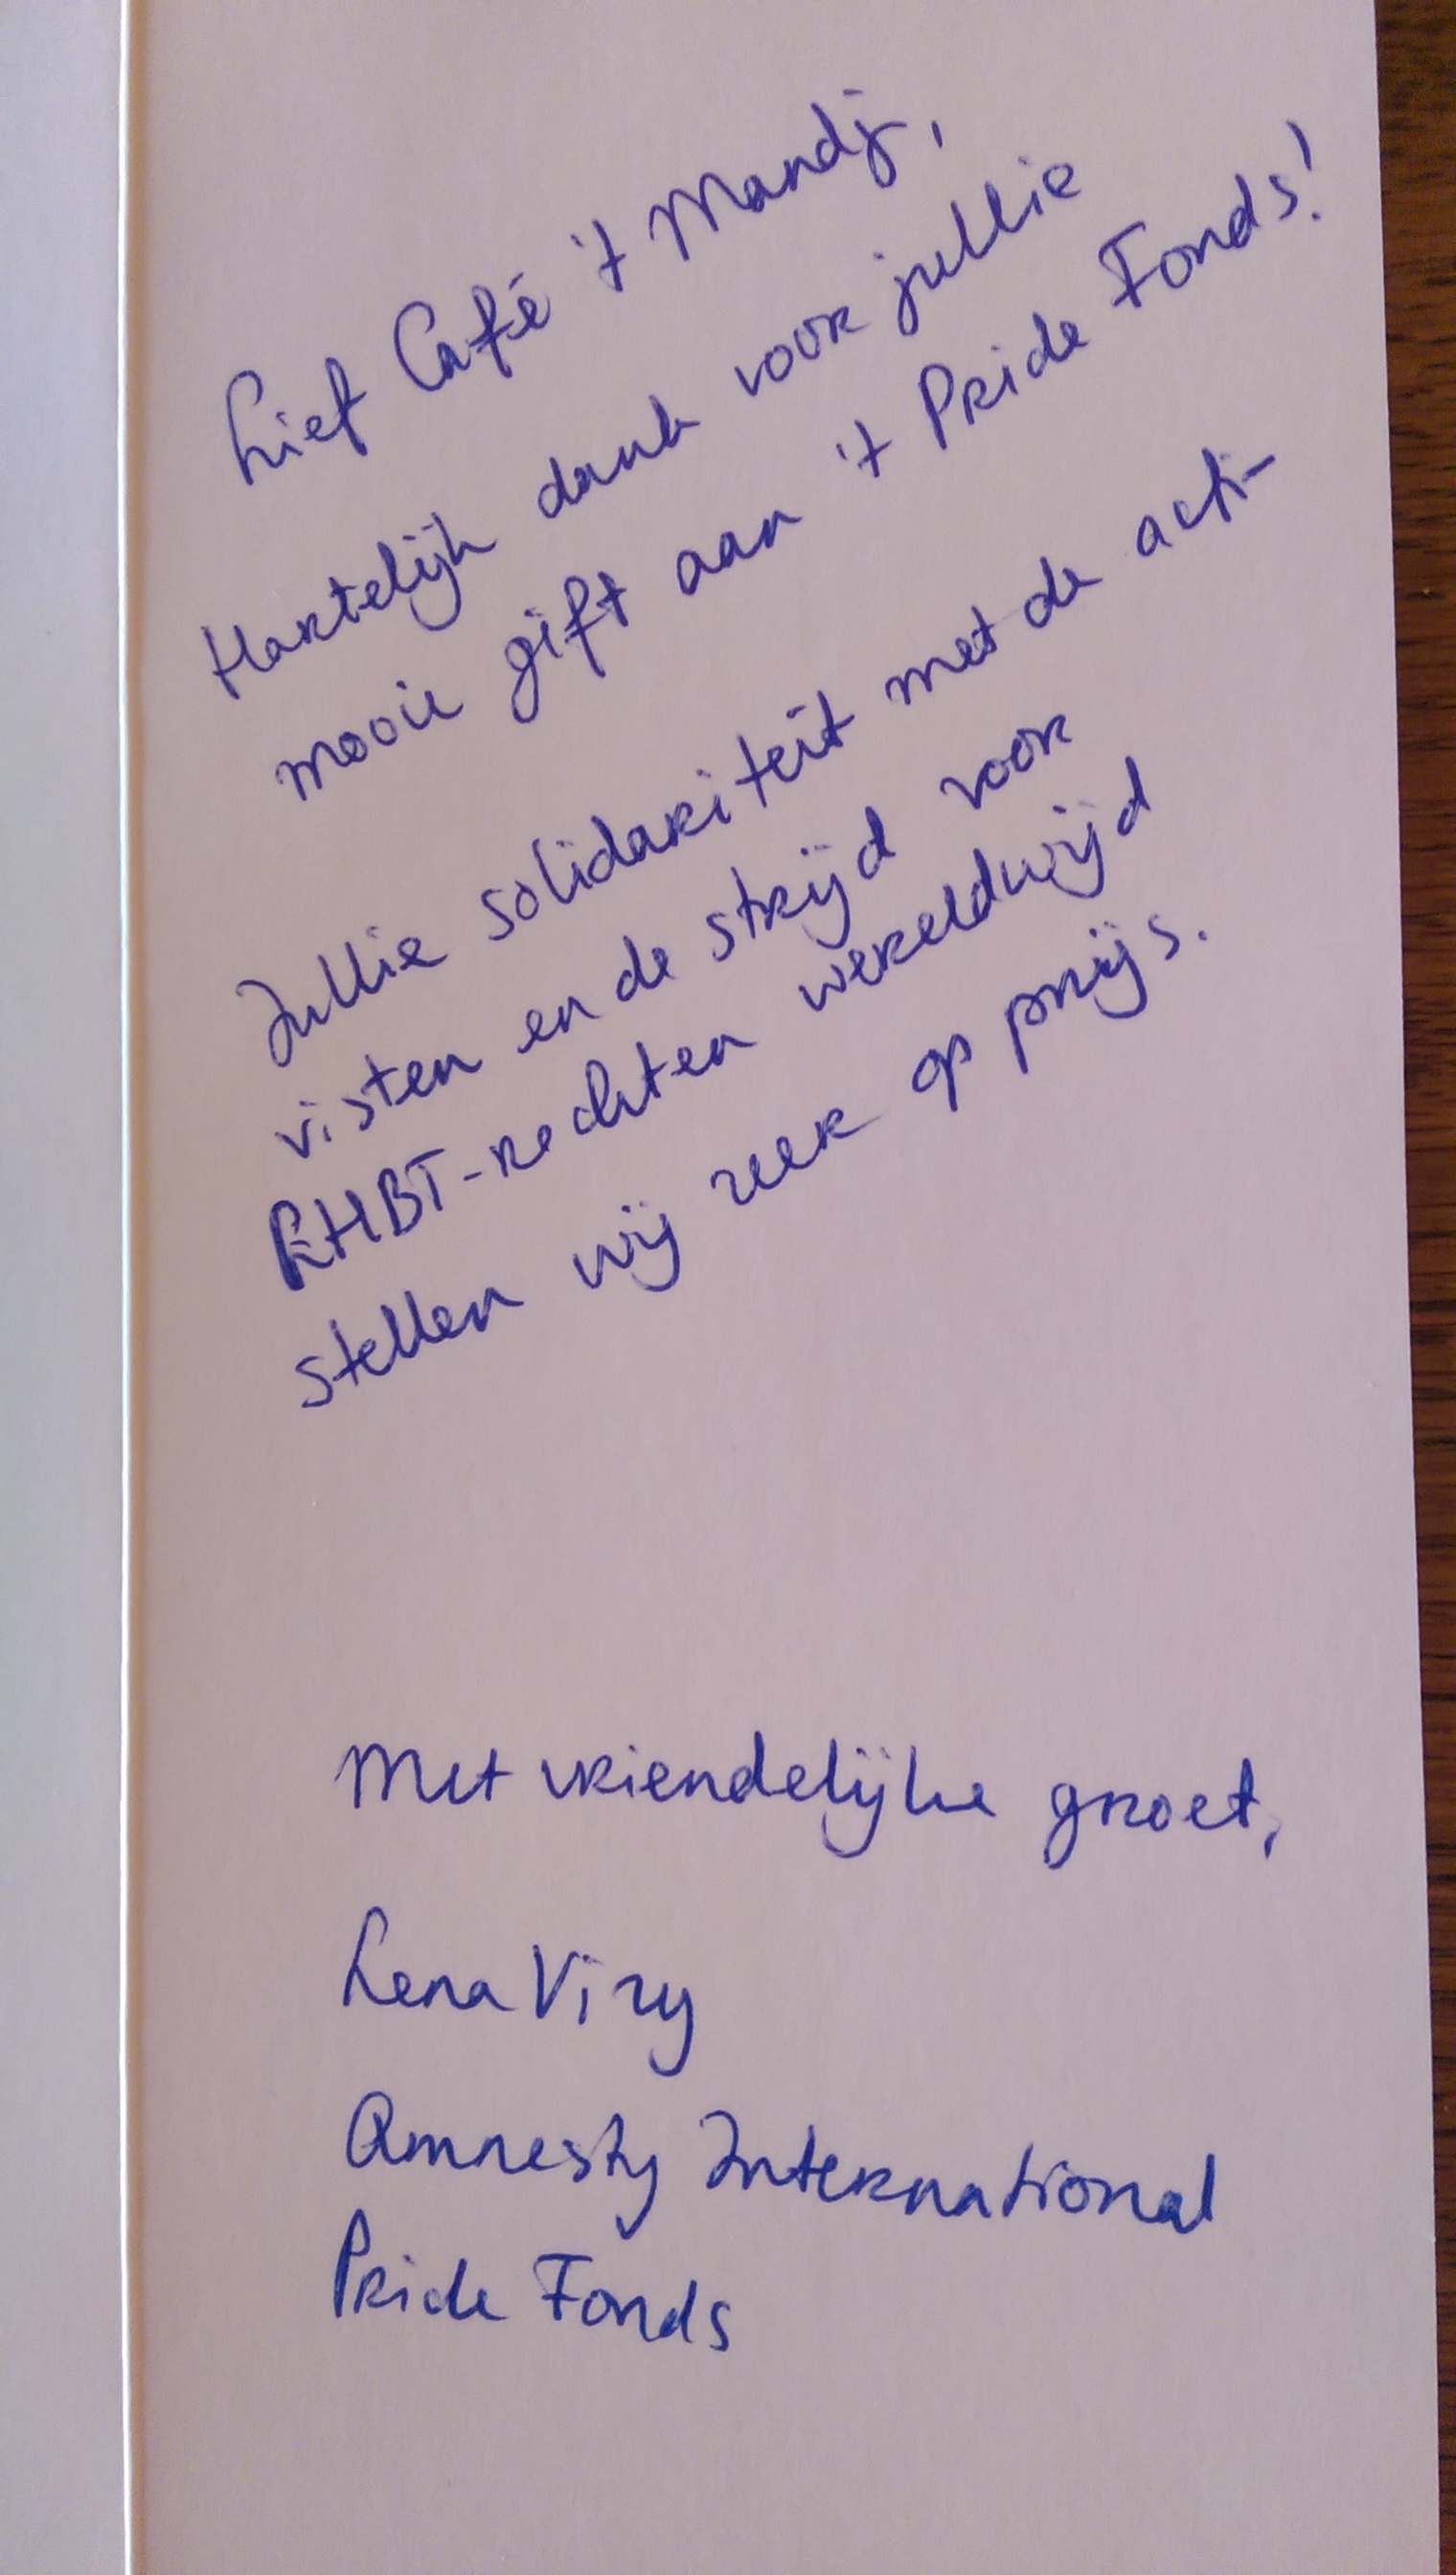 Lief Café 't Mandj,
Hartelijk dank voor jullie
mooie gift aan 't Pride Fonds!
Jullie solidariteit met de acti-
visten en de strijd voor
LHBT-rechten wereldwijd
stellen wij zeer op prijs.
Met vriendelijke groet,
Lena Vizy
Amnesty International
Pride Fonds